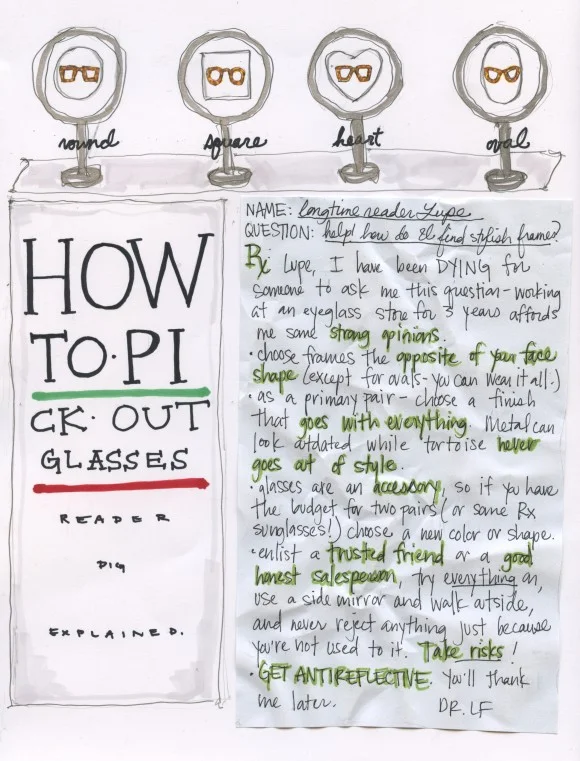 round square heart oval
HOW
TO·PI
CK· OUT
GLASSES
READER
DIG
EXPLAINED.
NAME: longtime reader Lupe
QUESTION: help! how do I find stylish frames?
Rx Lupe, I have been DYING for
someone to ask me this question - working
at an eyeglass store for 3 years affords
me some strong opinions.
· choose frames the opposite of your face
shape (except for ovals - you can wear it all.)
· as a primary pair - choose a finish
that goes with everything. Metal can
look outdated while tortoise never
goes out of style.
· glasses are an accessory, so if you have
the budget for two pairs (or some Rx
sunglasses!) choose a new color or shape.
· enlist a trusted friend or a good
honest salesperson, try everything on,
use a side mirror and walk outside,
and never reject anything just because
you're not used to it. Take risks!
· GET ANTIREFLECTIVE. You'll thank
me later. DR. LF